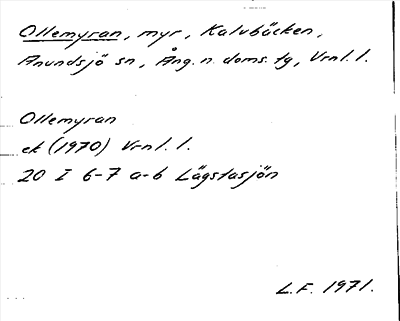 Ollemyran, myr, Kalvbäcken,
Anundsjö sn, Ång. n. doms. tg, Vrnl. l.
Ollemyran
ek (1970) Vrnl. l.
20 I 6-7 a-b Lägstasjön
L.F. 1971.